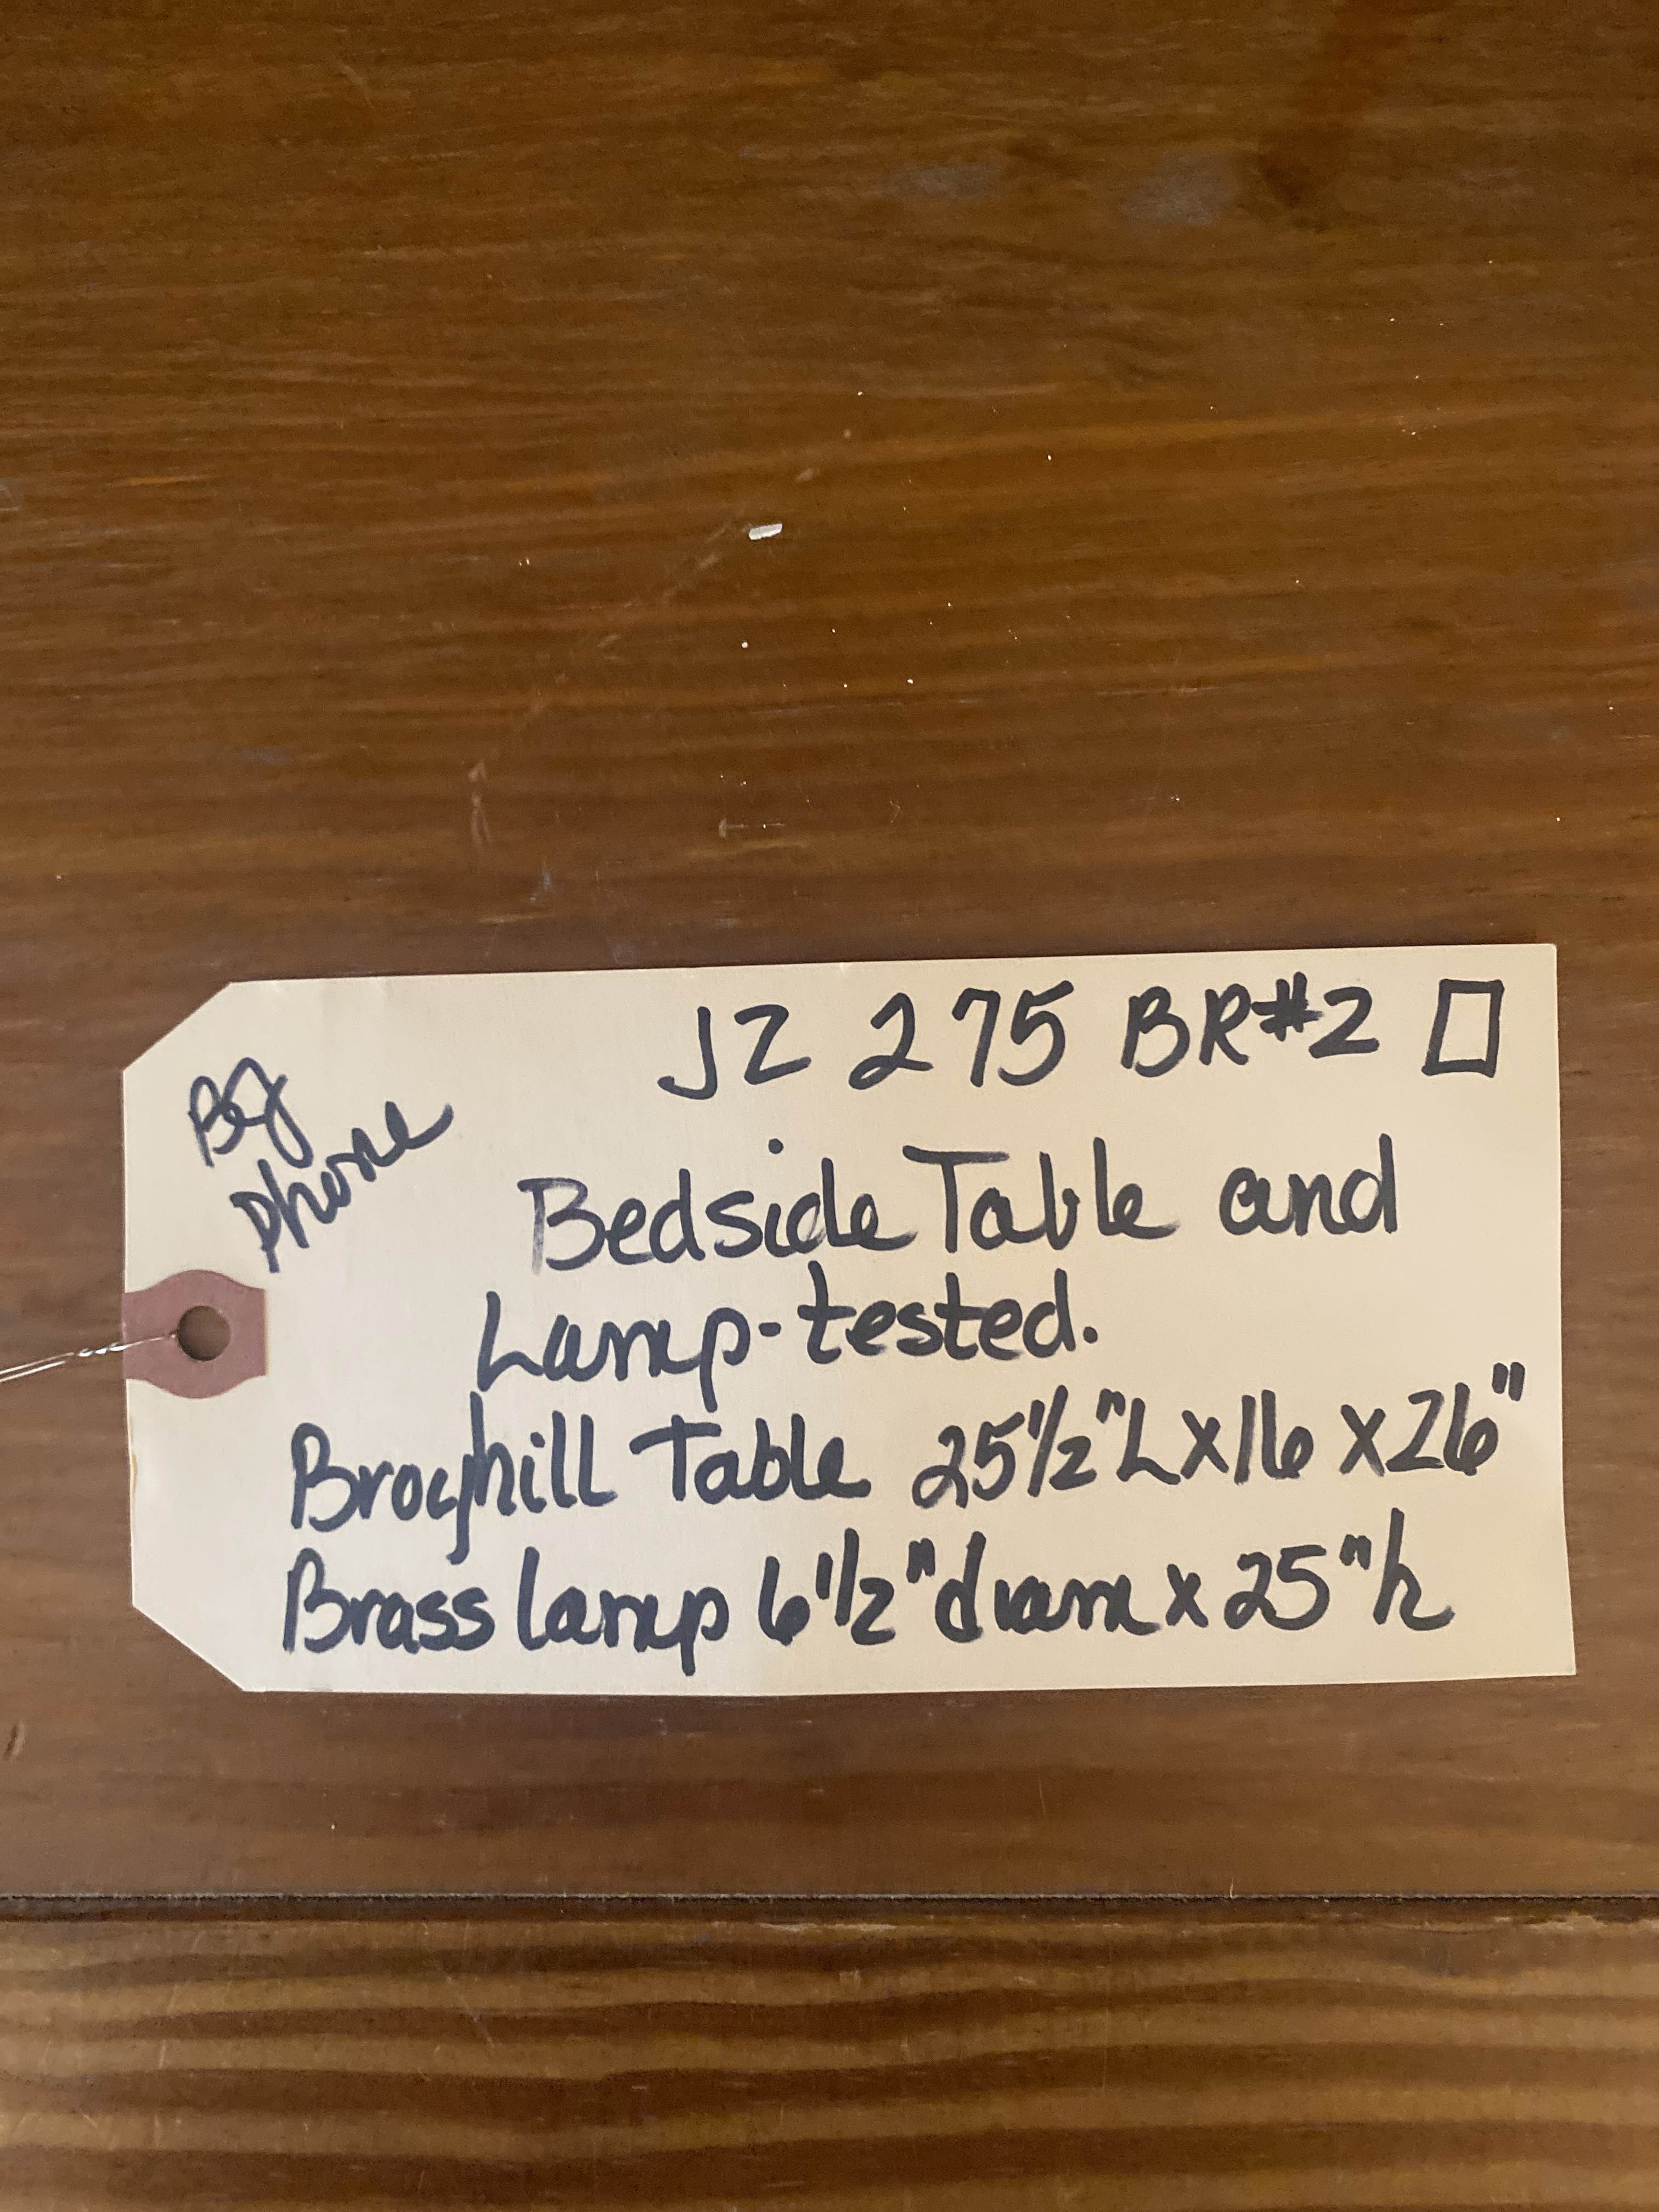 JZ 275 BR#2
BJ
phone
Bedside Table and
Lamp-tested.
Broyhill Table 25½"L x 16 x 26"
Brass lamp 6½" diam x 25"h